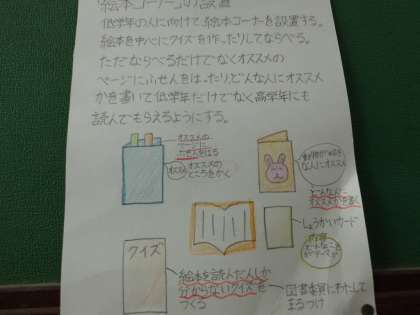 「絵本コーナー」の設置
低学年の人に向けて、絵本コーナーを設置する。
絵本を中心にクイズを作ったりしてならべる。
ただならべるだけでなくオススメの
ページにふせんをはったり、どんな人にオススメ
かを書いて低学年だけでなく高学年にも
読んでもらえるようにする。
オススメの
ページに
ふせんをはる
オススメの
ところをかく
な人にオススメ
どんな人に
オススメかを書く
しょうかいカード
クイズ
絵本を読んだ人しか
分からないクイズを
つくる
図書委員にわたして
まるつけ